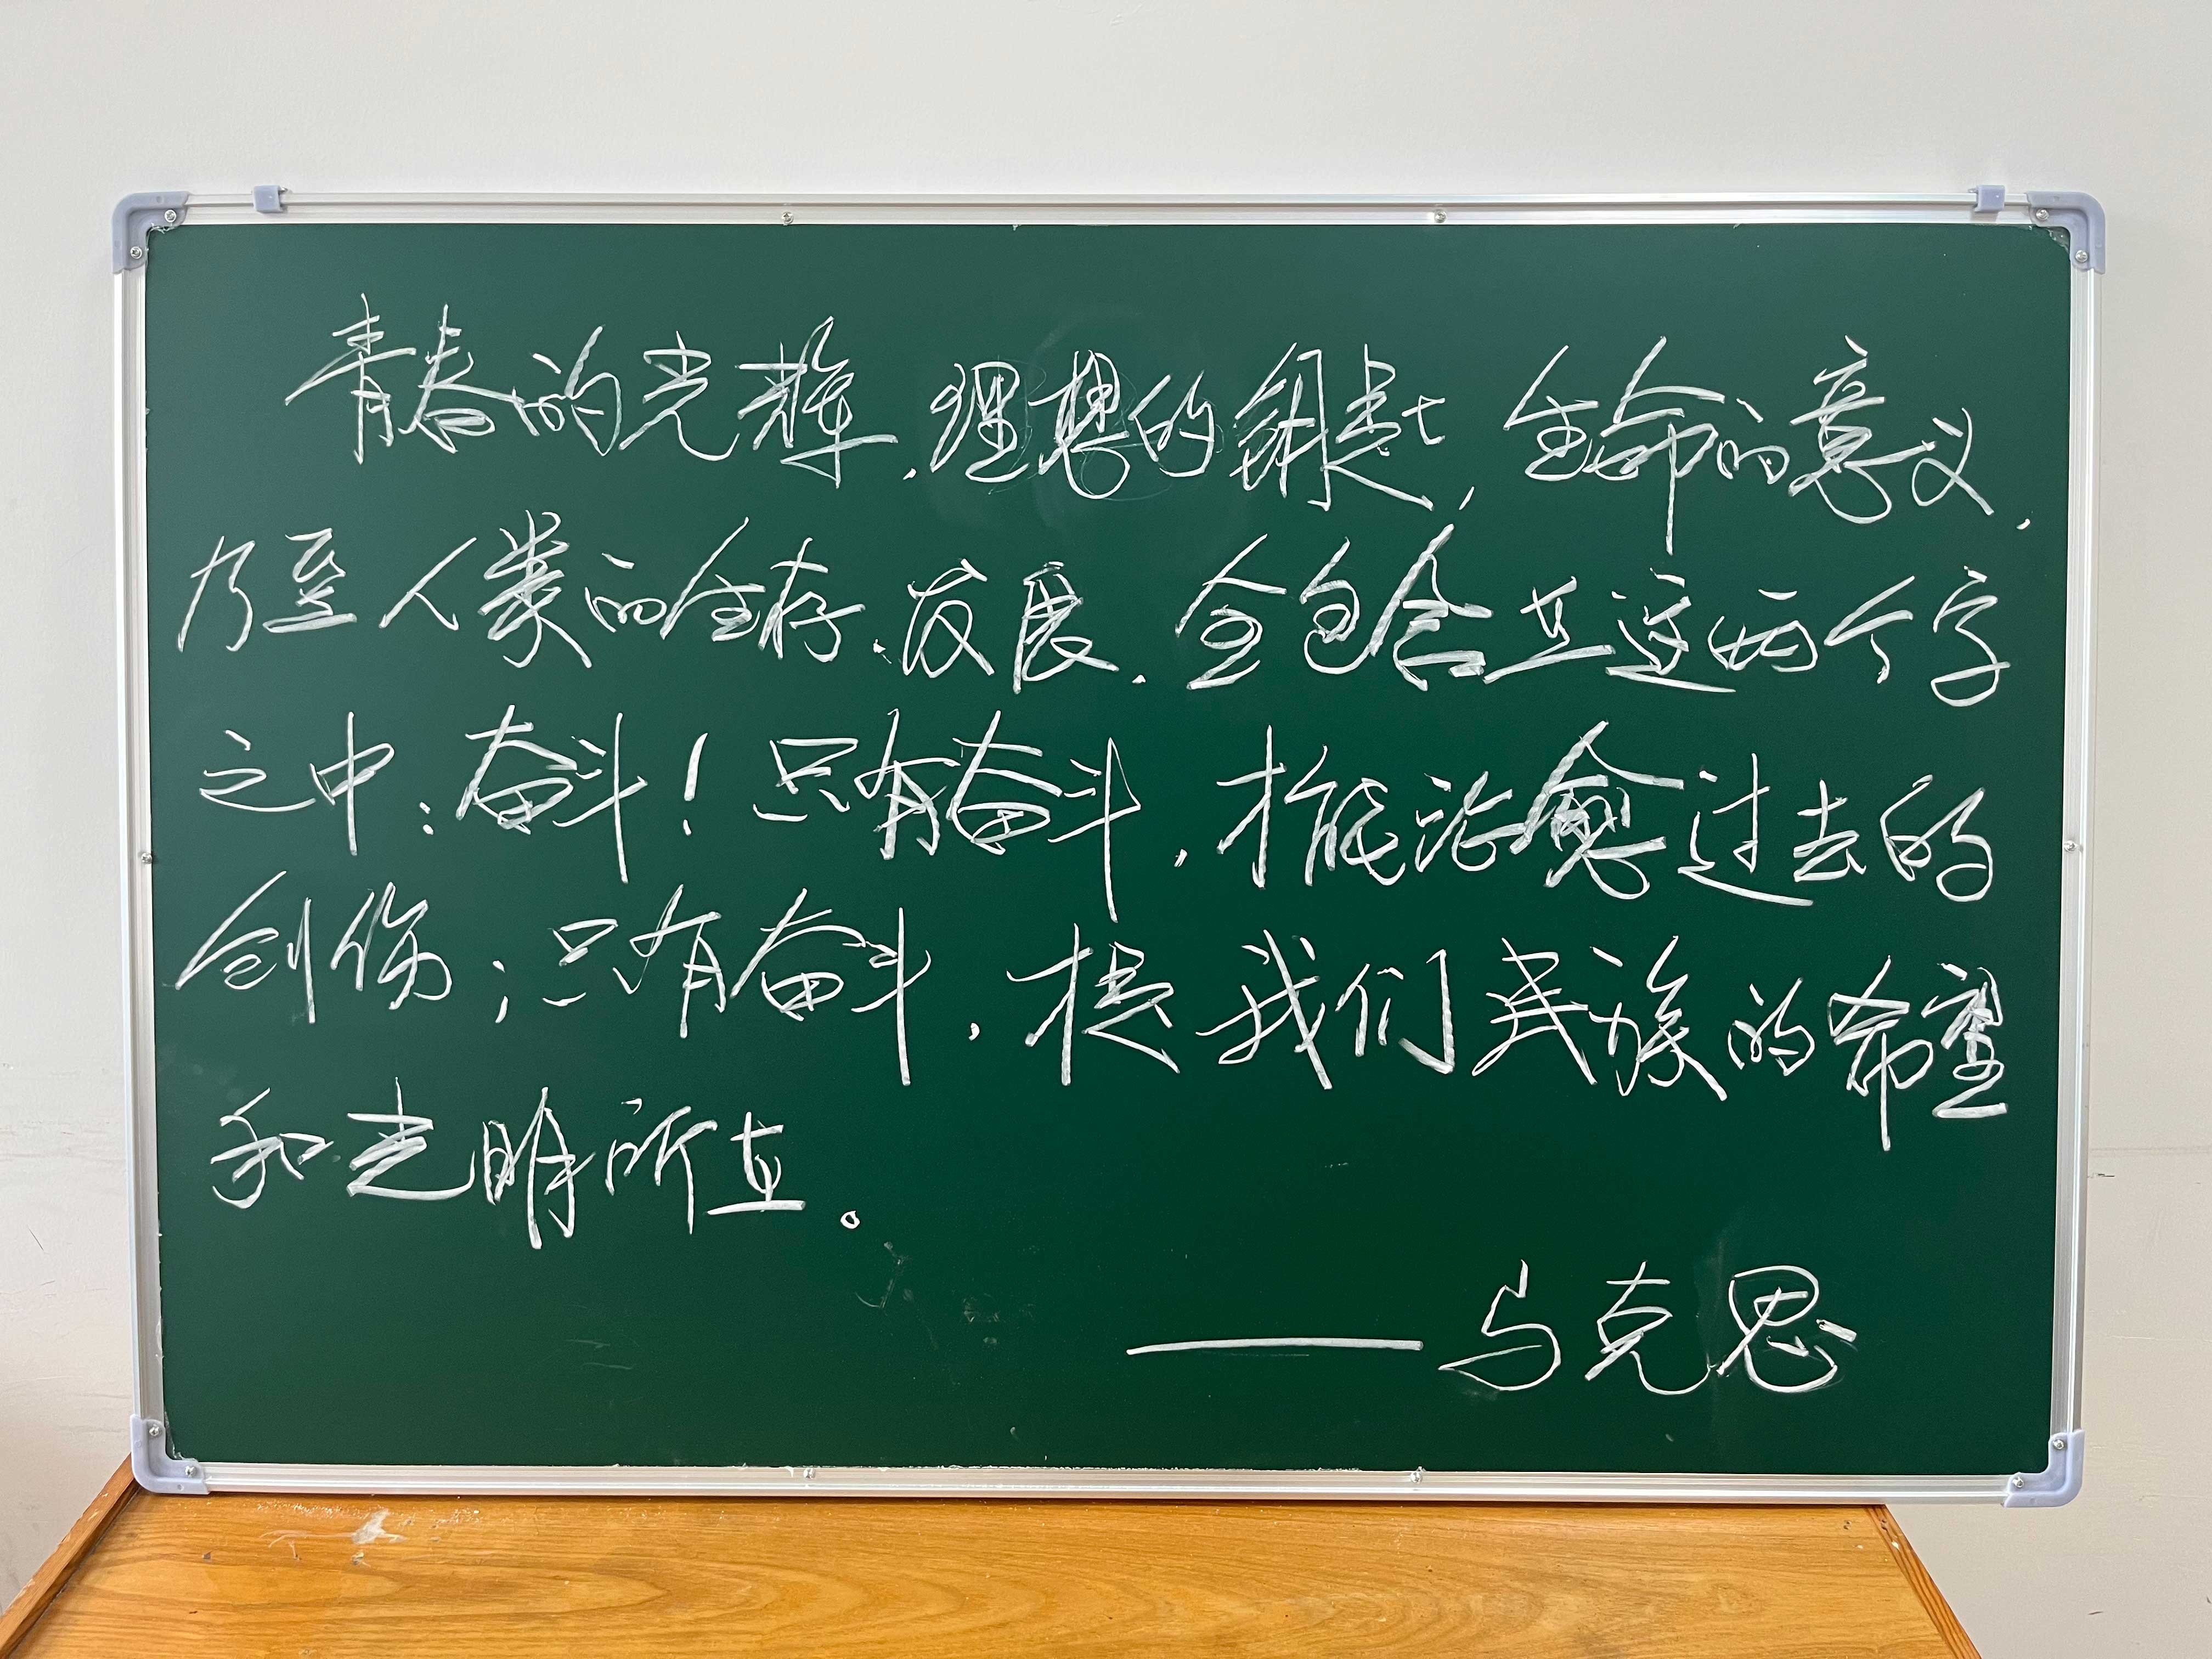 青春的光辉，理想的钥匙，生命的意义，
乃至人类的生存、发展，全包含在这两个字
之中：奋斗！只有奋斗，才能治愈过去的
创伤；只有奋斗，才是我们民族的希望
和光明所在。
——马克思